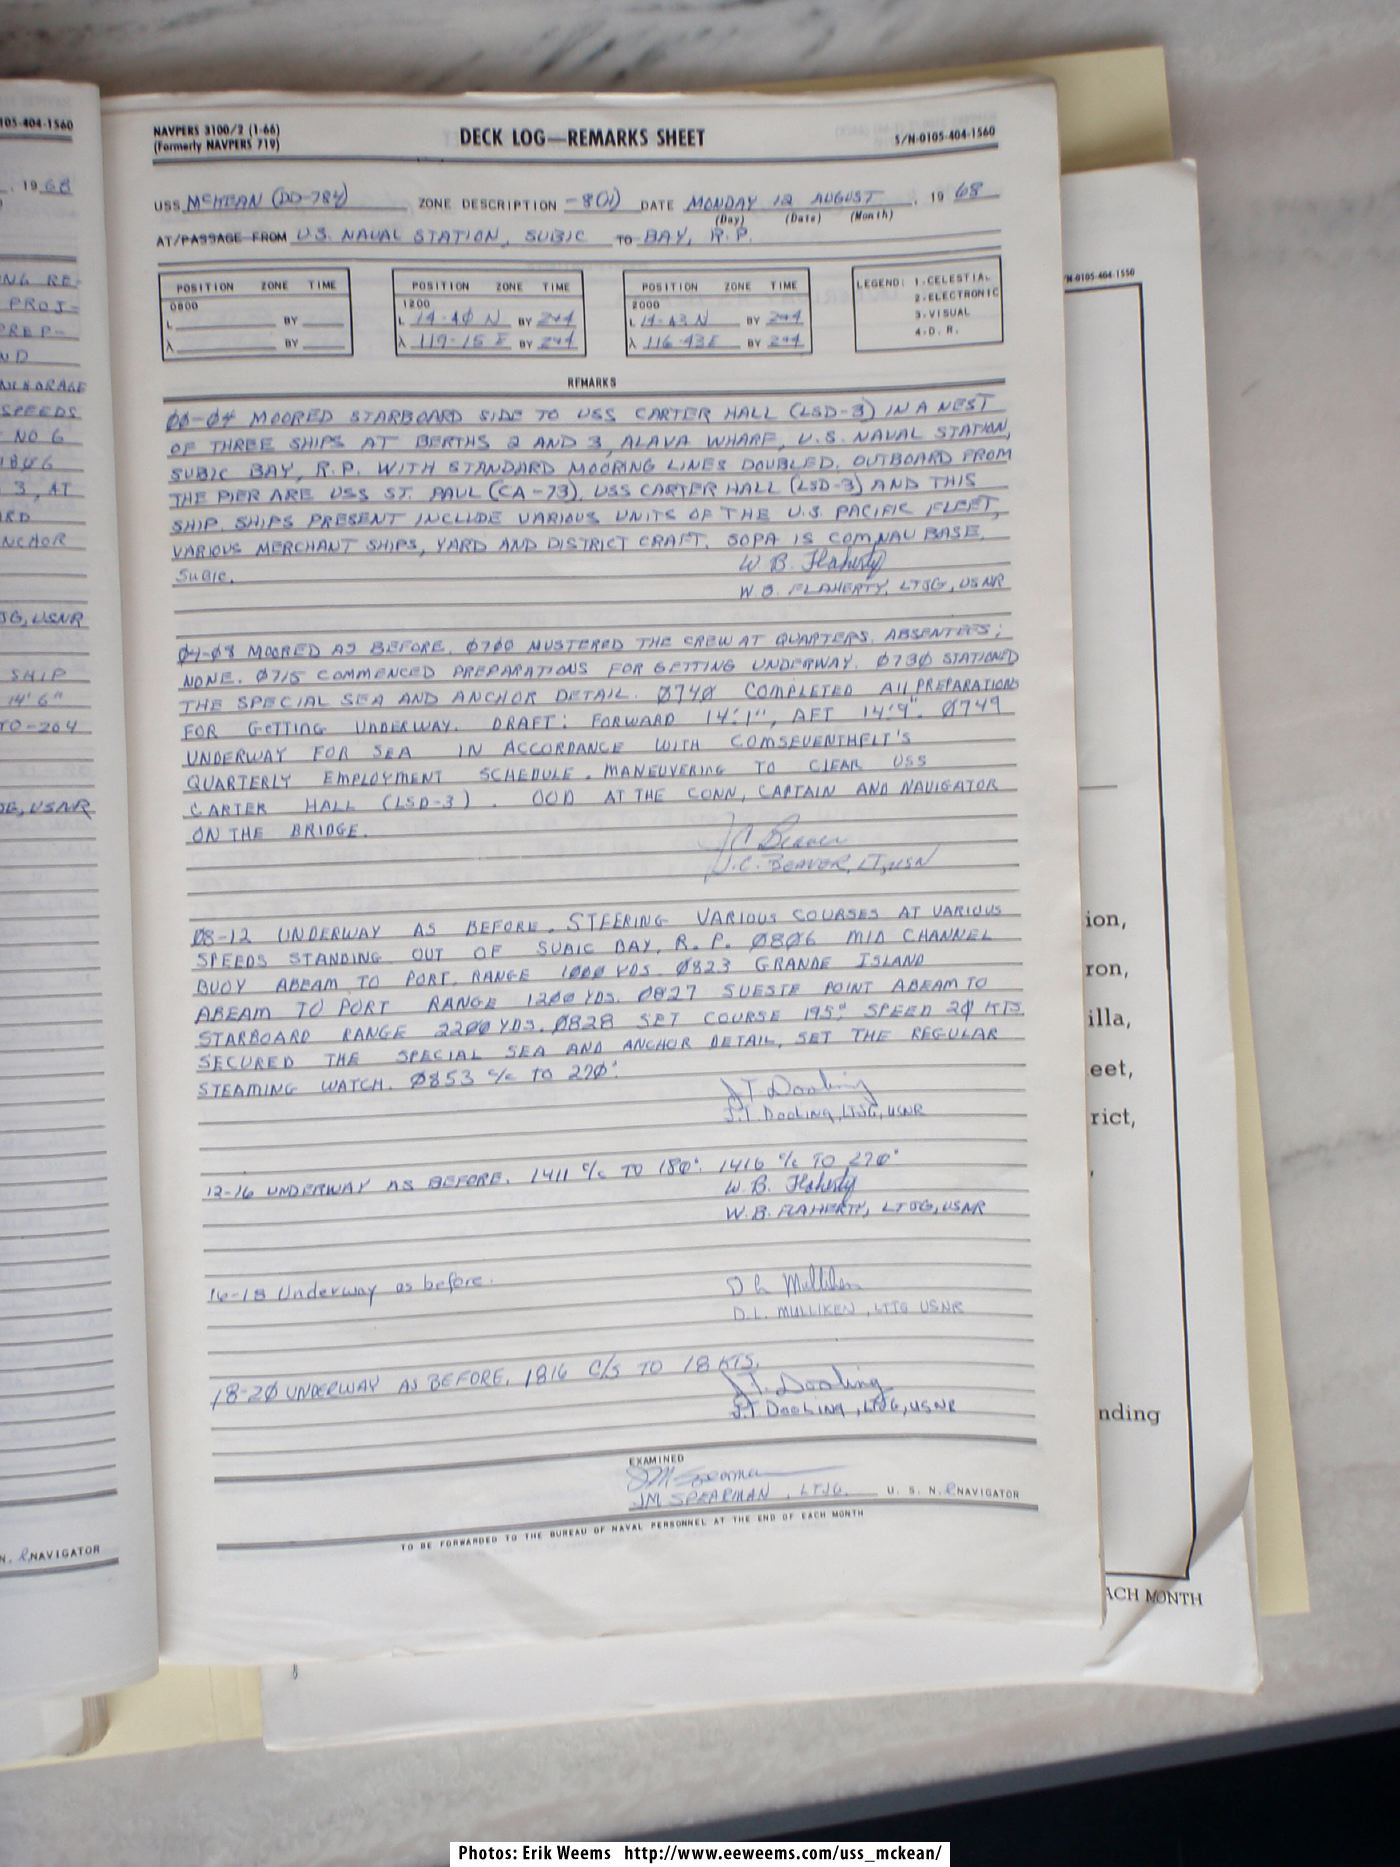 105-404-1560
, 1968
NG RE-
PROJ-
PREP-
ND
ANCHORAGE
SPEEDS
NO 6
1806
3, AT
ARD
ANCHOR
JG, USNR
SHIP
14'6"
TO-264
DG, USNR
N. NAVIGATOR
NAVPERS 3100/2 (1-66)
(Formerly NAVPERS 719)
DECK LOG—REMARKS SHEET
S/N-0105-404-1560
USS McKEAN (DD-784) ZONE DESCRIPTION -8(H) DATE MONDAY 12 AUGUST, 1968
(Day) (Date) (Month)
AT/PASSAGE FROM U.S. NAVAL STATION, SUBIC TO BAY, R.P.
POSITION ZONE TIME
0800
L BY
λ BY
POSITION ZONE TIME
1200
L 14-40 N BY 2+4
λ 119-15 E BY 2+4
POSITION ZONE TIME
2000
L 14-43 N BY 2+4
λ 116-43E BY 2+4
LEGEND: 1-CELESTIAL
2-ELECTRONIC
3-VISUAL
4-D. R.
REMARKS
00-04 MOORED STARBOARD SIDE TO USS CARTER HALL (LSD-3) IN A NEST
OF THREE SHIPS AT BERTHS 2 AND 3, ALAVA WHARF, U.S. NAVAL STATION,
SUBIC BAY, R.P. WITH STANDARD MOORING LINES DOUBLED. OUTBOARD FROM
THE PIER ARE USS ST. PAUL (CA-73), USS CARTER HALL (LSD-3) AND THIS
SHIP. SHIPS PRESENT INCLUDE VARIOUS UNITS OF THE U.S. PACIFIC FLEET,
VARIOUS MERCHANT SHIPS, YARD AND DISTRICT CRAFT. SOPA IS COMNAVBASE
SUBIC.
W. B. Flaherty
W.B. FLAHERTY, LTJG, USNR
04-08 MOORED AS BEFORE. 0700 MUSTERED THE CREW AT QUARTERS. ABSENTEES;
NONE. 0715 COMMENCED PREPARATIONS FOR GETTING UNDERWAY. 0730 STATIONED
THE SPECIAL SEA AND ANCHOR DETAIL. 0740 COMPLETED All PREPARATIONS
FOR GETTING UNDERWAY. DRAFT: FORWARD 14'1", AFT 14'9". 0749
UNDERWAY FOR SEA IN ACCORDANCE WITH COMSEVENTHFLT'S
QUARTERLY EMPLOYMENT SCHEDULE. MANEUVERING TO CLEAR USS
CARTER HALL (LSD-3). OOD AT THE CONN, CAPTAIN AND NAVIGATOR
ON THE BRIDGE.
J C Beaver
J.C. BEAVER, LT, USN
08-12 UNDERWAY AS BEFORE. STEERING VARIOUS COURSES AT VARIOUS
SPEEDS STANDING OUT OF SUBIC BAY, R.P. 0806 MID CHANNEL
BUOY ABEAM TO PORT, RANGE 1000 YDS. 0823 GRANDE ISLAND
ABEAM TO PORT RANGE 1200 YDS. 0827 SUESTE POINT ABEAM TO
STARBOARD RANGE 2200 YDS. 0828 SET COURSE 195° SPEED 20 KTS.
SECURED THE SPECIAL SEA AND ANCHOR DETAIL, SET THE REGULAR
STEAMING WATCH. 0853 c/c TO 270°.
J T. Dooling
J.T. Dooling, LTJG, USNR
12-16 UNDERWAY AS BEFORE. 1411 c/c TO 180°. 1416 c/c TO 270°
W. B. Flaherty
W.B. FLAHERTY, LTJG, USNR
16-18 Underway as before.
D L Mulliken
D.L. MULLIKEN, LTJG USNR
18-20 UNDERWAY AS BEFORE. 1816 C/S TO 18 KTS.
J T. Dooling
J.T. Dooling, LTJG, USNR
EXAMINED
JM Spearman
JM SPEARMAN, LTJG. U. S. N. R NAVIGATOR
TO BE FORWARDED TO THE BUREAU OF NAVAL PERSONNEL AT THE END OF EACH MONTH
/N-0105-404-1550
ion,
ron,
illa,
eet,
rict,
,
nding
ACH MONTH
Photos: Erik Weems http://www.eeweems.com/uss_mckean/